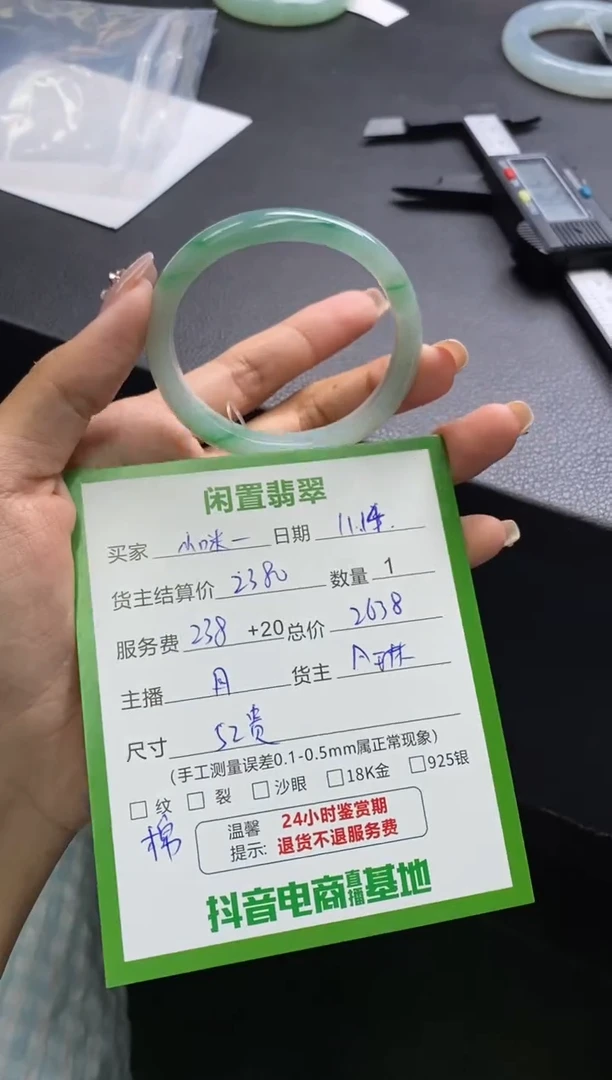 闲置翡翠
买家 小咪一 日期 11.14
货主结算价 2380 数量 1
服务费 238 +20 总价 2638
主播 月 货主 A琳
尺寸 52贵
(手工测量误差0.1-0.5mm属正常现象)
□ 纹 □ 裂 □ 沙眼 □ 18K金 □ 925银
棉
温馨提示: 24小时鉴赏期
退货不退服务费
抖音电商直播基地